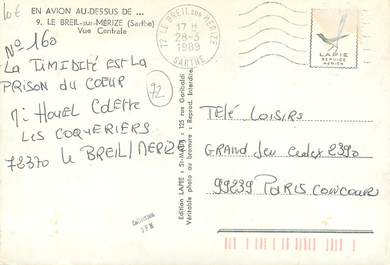 lot
EN AVION AU-DESSUS DE ...
9. LE BREIL-sur-MÉRIZE (Sarthe)
Vue Centrale
N° 160
LA TIMIDITÉ EST LA
PRISON DU COEUR
LES COQUERIERS
72370 LE BREIL/MERIZE
72
Edition LAPIE : St-MAUR : 125 rue Garibaldi
Véritable photo au bromure : Reprod. Interdite.
72 LE BREIL SUR MÉRIZE
17 H
28-3
1989
SARTHE
LAPIE
SERVICE
AÉRIEN
TÉLÉ LOISIRS
GRAND JEU Cedex 2390
99239 PARIS CONCOURS